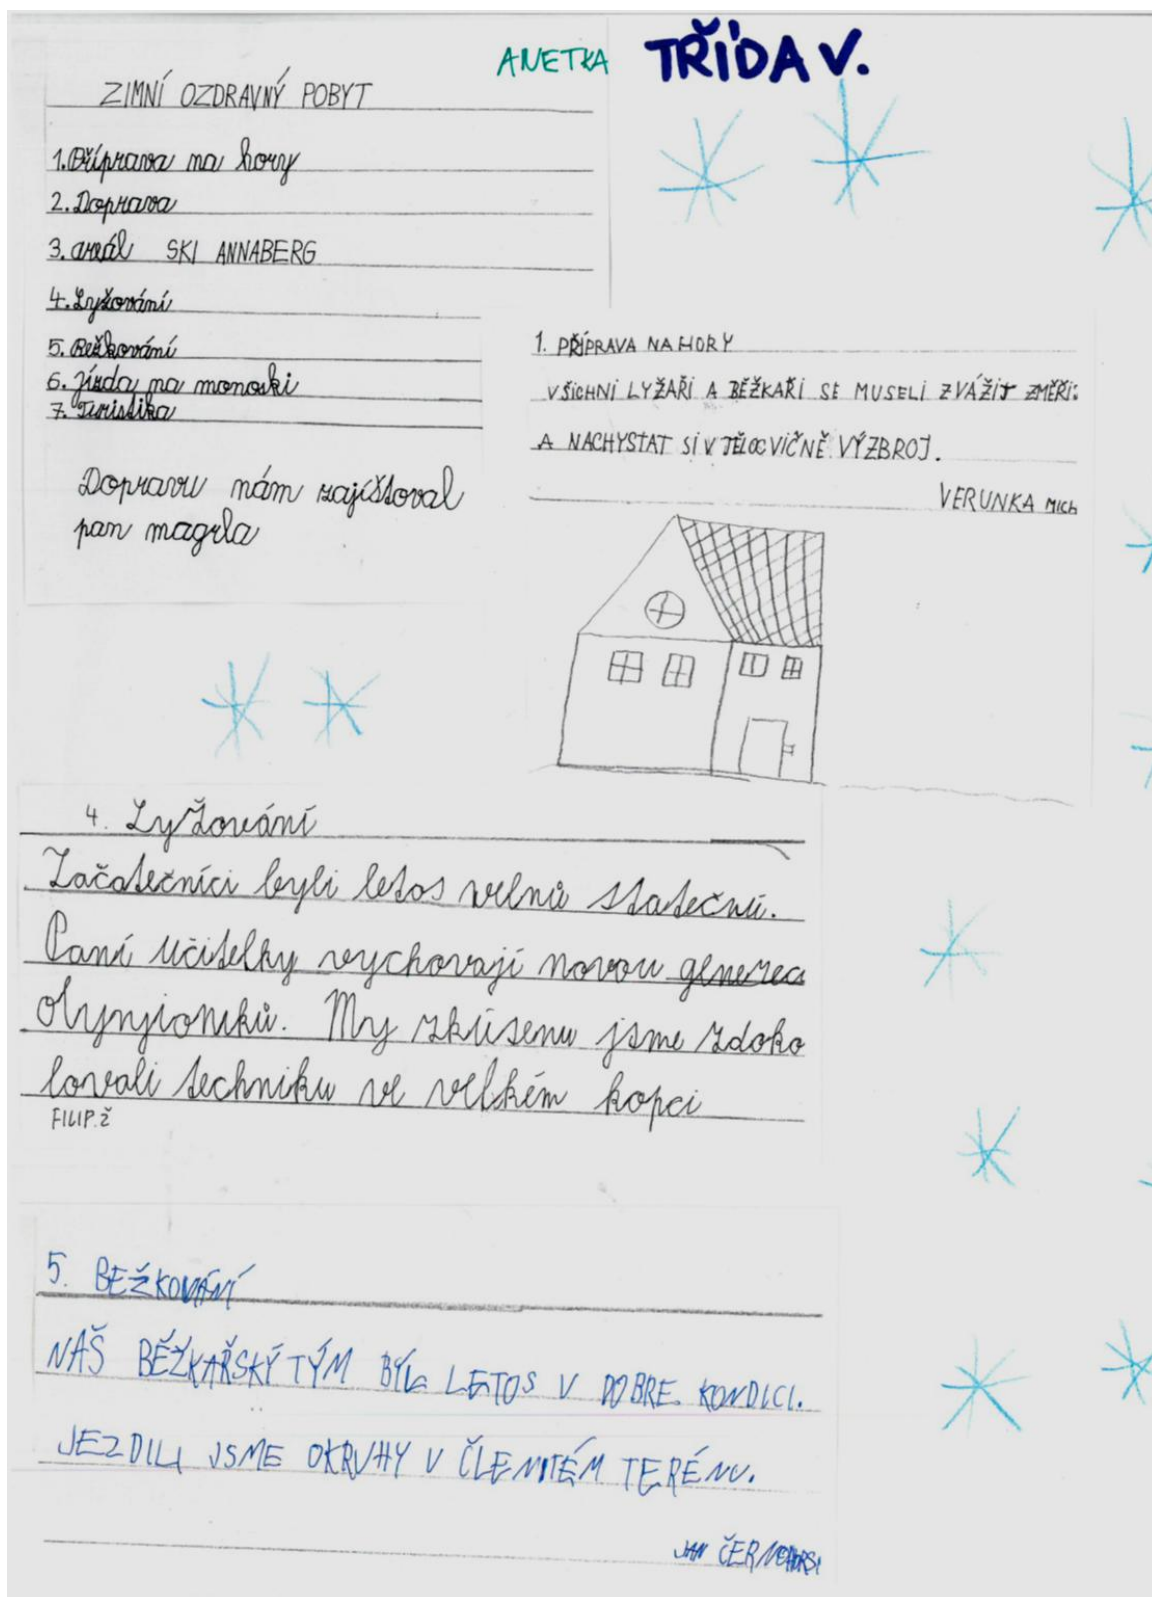 ANETKA TŘÍDA V.
ZIMNÍ OZDRAVNÝ POBYT
1. Příprava na hory
2. Doprava
3. areál SKI ANNABERG
4. Lyžování
5. Bežkování
6. Jízda na monoski
7. Turistika
Dopravu nám zajíštoval
pan magrla
1. PŘÍPRAVA NA HORY
VŠICHNI LYŽAŘI A BĚŽKAŘI SE MUSELI ZVÁŽIT ZMĚŘI
A NACHYSTAT SI V TĚLOCVIČNĚ VÝZBROJ.
VERUNKA MICH
4. Lyžování
Začátečníci byli letos velmi statečni.
Paní učitelky vychovají novou generac
olympioniků. My zkušenu jsme zdoko
lovali techniku ve velkém kopci
FILIP.Ž
5. BEŽKOVÁNÍ
NÁŠ BĚŽKAŘSKÝ TÝM BYL LETOS V DOBRE KONDICI.
JEZDILI JSME OKRUHY V ČLENITÉM TERÉNU.
JAN ČERNOHORSK